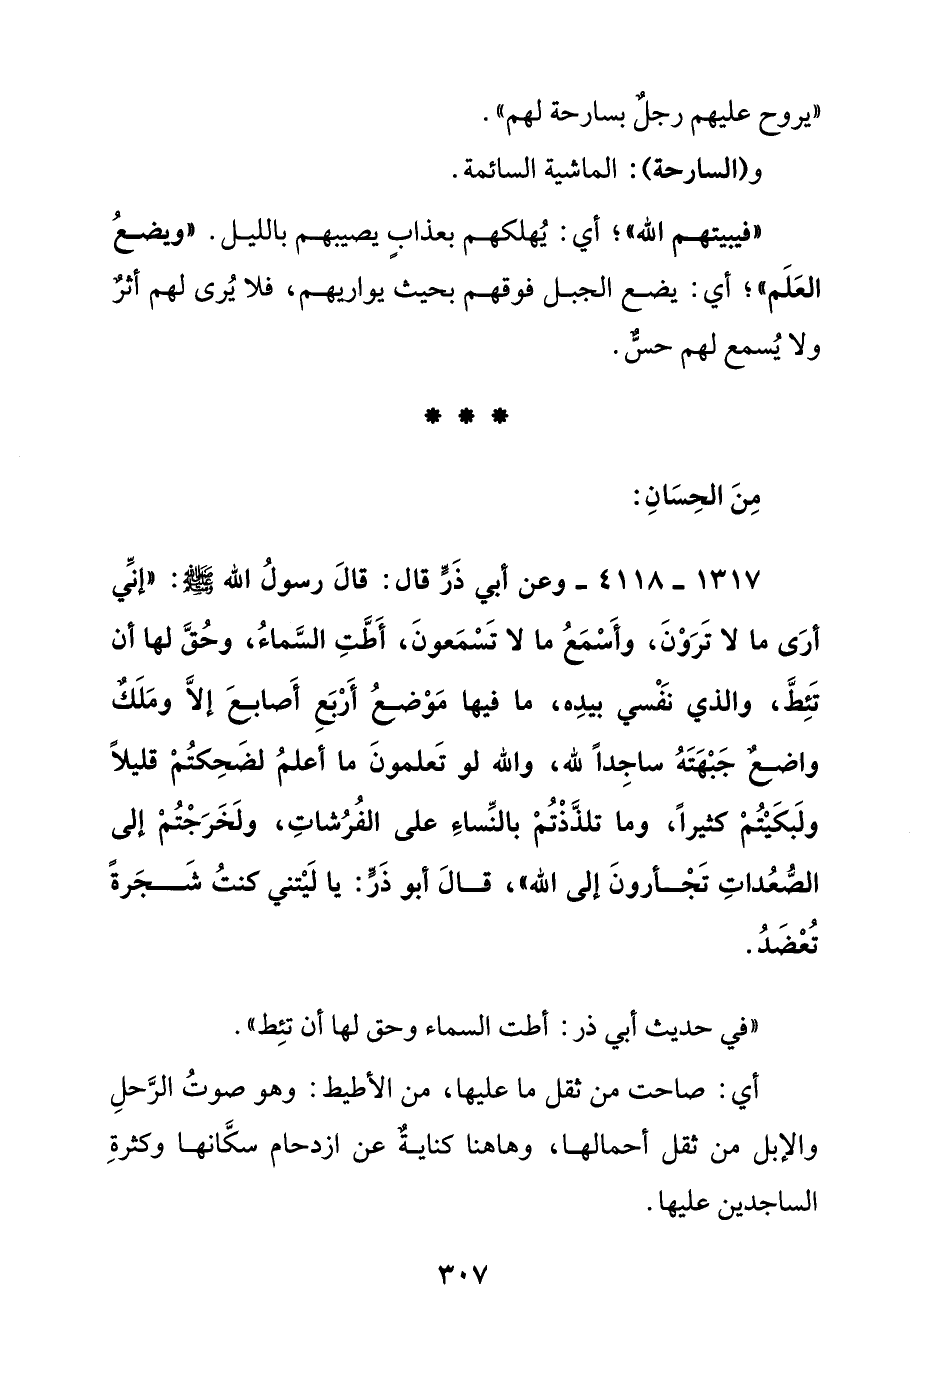 «يروح عليهم رجلٌ بسارحة لهم».
و(السارحة): الماشية السائمة.
«فيبيتهم الله»؛ أي: يُهلكهم بعذابٍ يصيبهم بالليل. «ويضعُ
العَلَم»؛ أي: يضع الجبل فوقهم بحيث يواريهم، فلا يُرى لهم أثرٌ
ولا يُسمع لهم حسٌّ.
* * *
مِنَ الحِسَانِ:
١٣١٧ - ٤١١٨ - وعن أبي ذَرٍّ قال: قالَ رسولُ الله ﷺ: «إنِّي
أرَى ما لا تَرَوْنَ، وأَسْمَعُ ما لا تَسْمَعونَ، أَطَّتِ السَّماءُ، وحُقَّ لها أن
تَئِطَّ، والذي نَفْسي بيدِه، ما فيها مَوْضعُ أَرْبَعِ أَصابعَ إلاَّ ومَلَكٌ
واضعٌ جَبْهَتَهُ ساجِداً لله، والله لو تَعلمونَ ما أعلمُ لضَحِكتُمْ قليلاً
ولَبَكَيْتُمْ كثيراً، وما تلذَّذْتُمْ بالنِّساءِ على الفُرُشاتِ، ولَخَرَجْتُمْ إلى
الصُّعُداتِ تَجْأرونَ إلى الله»، قالَ أبو ذَرٍّ: يا لَيْتني كنتُ شَجَرةً
تُعْضَدُ.
«في حديث أبي ذر: أطت السماء وحق لها أن تئِط».
أي: صاحت من ثقل ما عليها، من الأطيط: وهو صوتُ الرَّحلِ
والإبل من ثقل أحمالها، وهاهنا كنايةٌ عن ازدحام سكَّانها وكثرةِ
الساجدين عليها.
٣٠٧